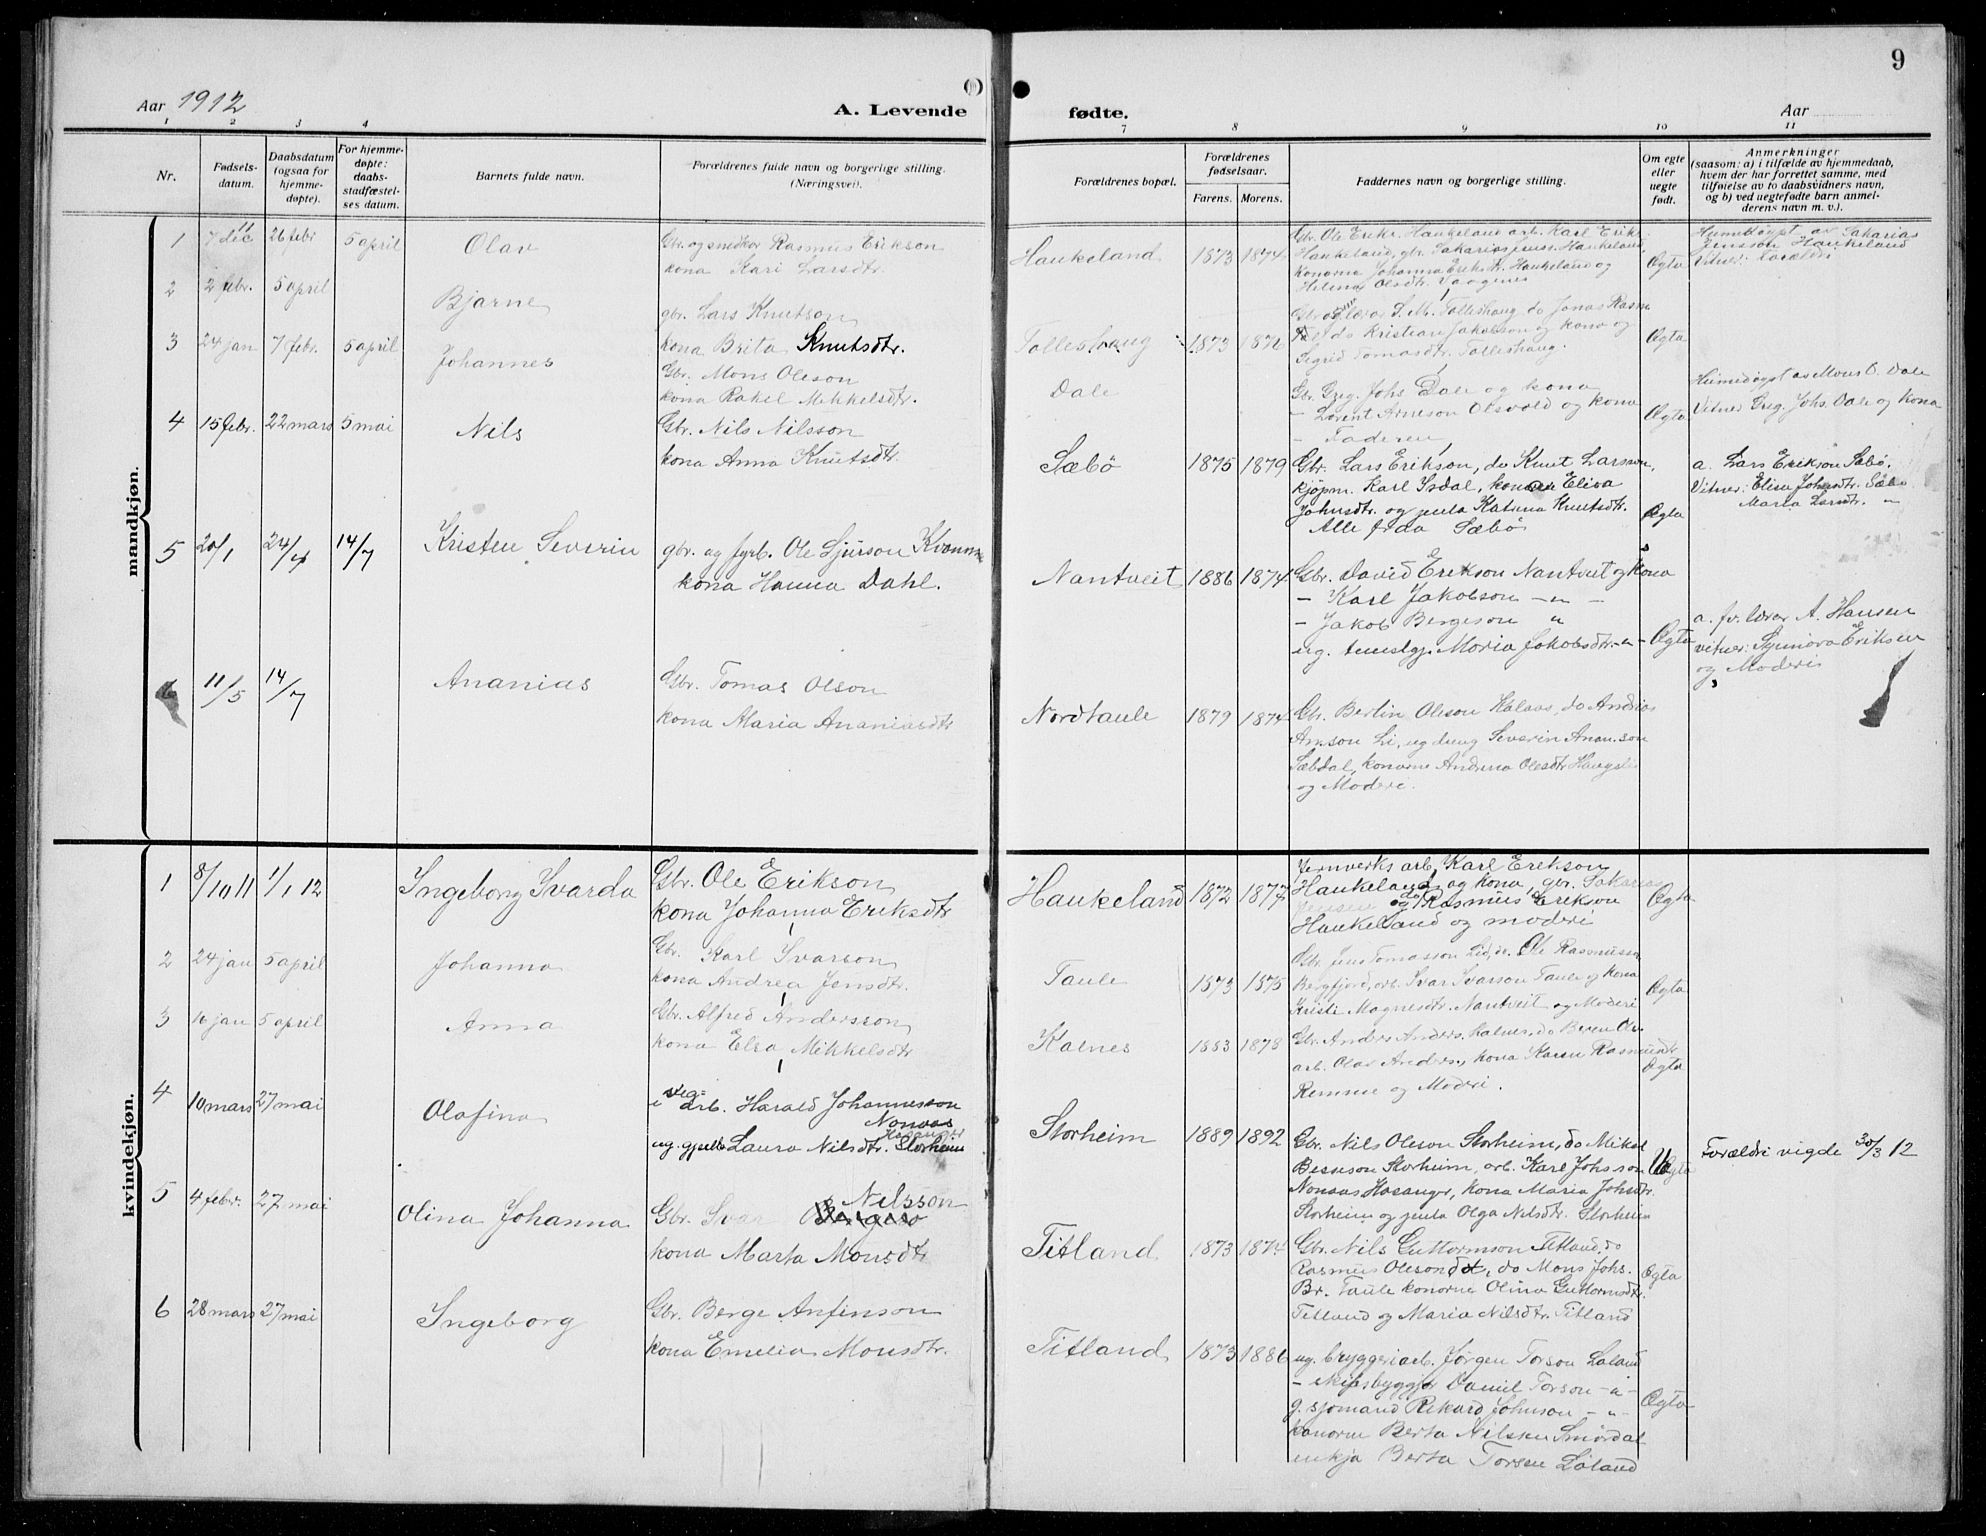 9
Aar 1912
A. Levende
fødte.
Aar
1 2 3 4 7 8 9 10 11
Nr.
Fødsels-
datum.
Daabsdatum
(ogsaa for
hjemme-
døpte).
For hjemme-
døpte:
daabs-
stadfæstel-
ses datum.
Barnets fulde navn.
Forældrenes fulde navn og borgerlige stilling.
(Næringsvei).
Forældrenes bopæl.
Forældrenes
fødselsaar.
Farens. Morens.
Faddernes navn og borgerlige stilling.
Om egte
eller
uegte
født.
Anmerkninger
(saasom: a) i tilfælde av hjemmedaab,
hvem der har forrettet samme, med
tilføielse av to daabsvidners navn,
og b) ved uegtefødte barn anmel-
derens navn m. v.).
mandkjøn.
1 7 dec 11 26 febr 5 april Olav
Gbr. og snedker Rasmus Erikson
kona Kari Larsdtr.
Haukeland 1873 1874
Gbr. Ole Eriks. Haukeland arb. Karl Eriks.
Haukeland, gbr. Sakarias Jenss. Haukeland
konorna Johanna Eriksdtr. Haukeland og
Helina Olsdtr. Vaagenes
Ægta
Heimedøypt av Sakarias
Jensson Haukeland
Vitner: Forældri
2 2 febr. 5 april Bjarne
gbr. Lars Knutson
kona Brita Knutsdtr.
Tolleshaug 1873 1876
S. M. Tolleshaug do Jonas Rasm.
do Kristian Jakobson og kona og
Sigrid Tomasdtr. Tolleshaug.
Ægta
3 24 jan 7 febr. 5 april Johannes
Gbr. Mons Oleson
kona Rakel Mikkelsdtr.
Dale
Gbr. Greg. Johs Dale og kona
- Lorent Arneson Olsvold og kona
- Faderen
Ægta
Heimedøypt av Mons O. Dale
Vitner Greg. Johs. Dale og kona
4 15 febr. 22 mars 5 mai Nils
Gbr. Nils Nilsson
kona Anna Knutsdtr.
Sæbö 1875 1879
Gbr. Lars Erikson, do Knut Larsson,
kjöpm. Karl Isdal, konorna Elisa
Johnsdtr. og jenta Katrina Knutsdtr.
Alle frå Sæbö
Ægta
a. Lars Erikson Sæbö.
Vitner: Elisa Johnsdtr. Sæbö
Maria Larsdtr. "
5 20/1 24/4 14/7 Kristen Severin
gbr. og fyrb. Ole Sjurson Kvamme
kona Hanna Dahl.
Nantveit 1886 1874
Gbr. David Erikson Nantveit og kona
- Karl Jakobson - " -
- Jakob Bergeson "
ug. tenestgj. Maria Jakobsdtr. - " -
Ægta
a. fv. lærar A. Hansen
vitner: Synnøva Eriksen
og Moderi
6 11/5 14/7 Ananias
Gbr. Tomas Olson
kona Maria Ananiasdtr
Nordtaule 1879 1874
Gbr. Bertin Oleson Kalaas, do Andreas
Arnson Li, ug dreng Severin Anan.son
Sæbdal, konorne Andrea Olesdtr
og Moderi.
kvindekjøn.
1 8/10 11 1/1 12 Ingeborg Ivarda
Gbr. Ole Erikson
kona Johanna Eriksdtr
Haukeland 1872 1877
Jernverks arb. Karl Erikson
Haukeland og kona, gbr. Sakarias
Jensen og do Rasmus Erikson
Haukeland og moderi
Ægta
2 24 jan 5 april Johanna
Gbr. Karl Ivarson
kona Andrea Jensdtr.
Taule 1873 1875
Gbr. Jens Tomasson Lid, do. Ole Rasmusson
Bergfjord, arb. Ivar Ivarson Taule og kona
Kristi Magnesdtr. Nantveit og Moderi
Ægta
3 16 jan 5 april Anna
Gbr. Alfred Andersson
kona Elsa Mikkelsdtr
Kalnes 1883 1878
Gbr. Anders Anders. Kalnes, do Beren Ols.
arb. Olav Anders., kona Karen Rasmusdtr
Remme og Moderi.
Ægta
4 10 mars 27 mai Olafina
veg=
arb. Harald Johannesson
Nonaas
Hosanger
ug. gjenta Laura Nilsdtr. Storheim
Storheim 1889 1892
Gbr. Nils Oleson Storheim, do Mikal
Bernson Storheim, arb. Karl Johsson
Nonaas Hosanger, kona Maria Johsdtr.
Storheim og jenta Olga Nilsdtr. Storheim
Uægta
Forældri vigde 30/3 12
5 4 febr. 27 mai Olina Johanna
Nilsson
Gbr. Ivar
kona Marta Monsdtr
Titland 1873 1874
Gbr. Nils Guttormson Titland, do
Rasmus Oleson do, do Mons Johs.
Br. Taule konorne Olina Guttormsdtr.
Titland og Maria Nilsdtr. Titland
Ægta
6 28 mars 27 mai Ingeborg
Gbr. Berge Anfinson
kona Emelia Monsdtr.
Titland 1873 1886
ug. bryggeriarb. Jørgen Torson Løland
- skibsbyggjar Daniel Torson - " -
g. sjømand Rikard Johnson - " -
konorne Berta Nilsen Smørdal
enkja Berta Torsen Løland
Ægta